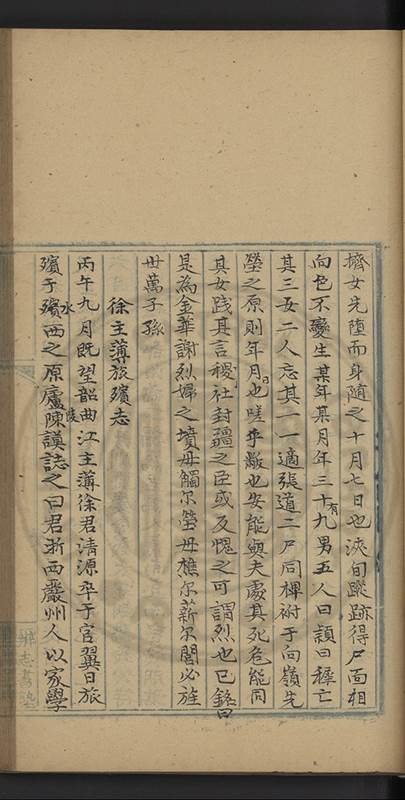 擠女先墮而身隨之十月七日也浹旬蹤跡得尸面相
向色不變生某年某月年三十有九男五人曰穎曰穉亡
其三女二人忘其一一適張道二尸同椑祔于向嶺先
塋之原則年月日也嗟乎檄也安能與夫處其死危能同
其女踐其言稷社封疆之臣或反愧之可謂烈也已銘曰
是為金華謝烈婦之墳毋觸尔塋毋樵尔薪尔閭必旌
世萬子孫
徐主薄旅殯志
丙午九月既望韶曲江主薄徐君清源卒于官翼日旅
殯于殯水西之原廬陵陳謨誌之曰君浙西嚴州人以家學